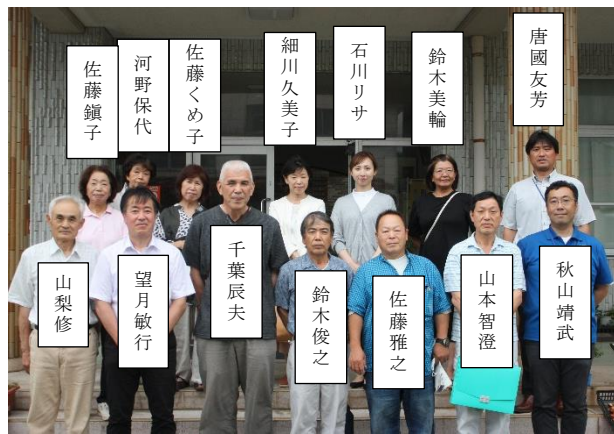 佐藤鎭子
河野保代
佐藤くめ子
細川久美子
石川リサ
鈴木美輪
唐國友芳
山梨修
望月敏行
千葉辰夫
鈴木俊之
佐藤雅之
山本智澄
秋山靖武